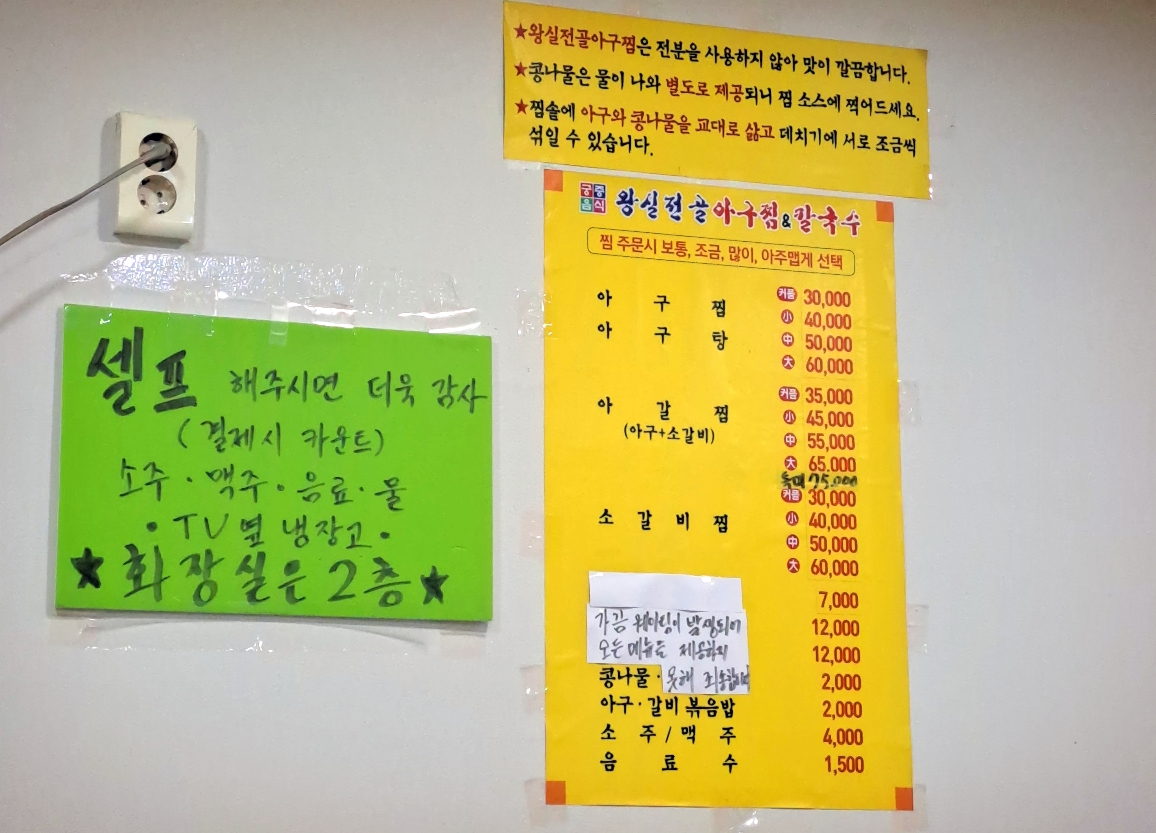 ★왕실전골아구찜은 전분을 사용하지 않아 맛이 깔끔합니다.
★콩나물은 물이 나와 별도로 제공되니 찜 소스에 찍어드세요.
★찜솥에 아구와 콩나물을 교대로 삶고 데치기에 서로 조금씩
섞일 수 있습니다.
궁중
음식
왕실전골아구찜&칼국수
찜 주문시 보통, 조금, 많이, 아주맵게 선택
아 구 찜 커플 30,000
小 40,000
아 구 탕 中 50,000
大 60,000
아 갈 찜 커플 35,000
(아구+소갈비) 小 45,000
中 55,000
大 65,000
75,000
커플 30,000
소 갈 비 찜 小 40,000
中 50,000
大 60,000
7,000
가끔 웨이팅이 발생되어 12,000
모든메뉴를 제공하지 12,000
콩나물· 못해 죄송합니다 2,000
아구·갈비 볶음밥 2,000
소 주 / 맥 주 4,000
음 료 수 1,500
셀프 해주시면 더욱 감사
(결제시 카운트)
소주·맥주·음료·물
·TV옆 냉장고·
★화장실은 2층★